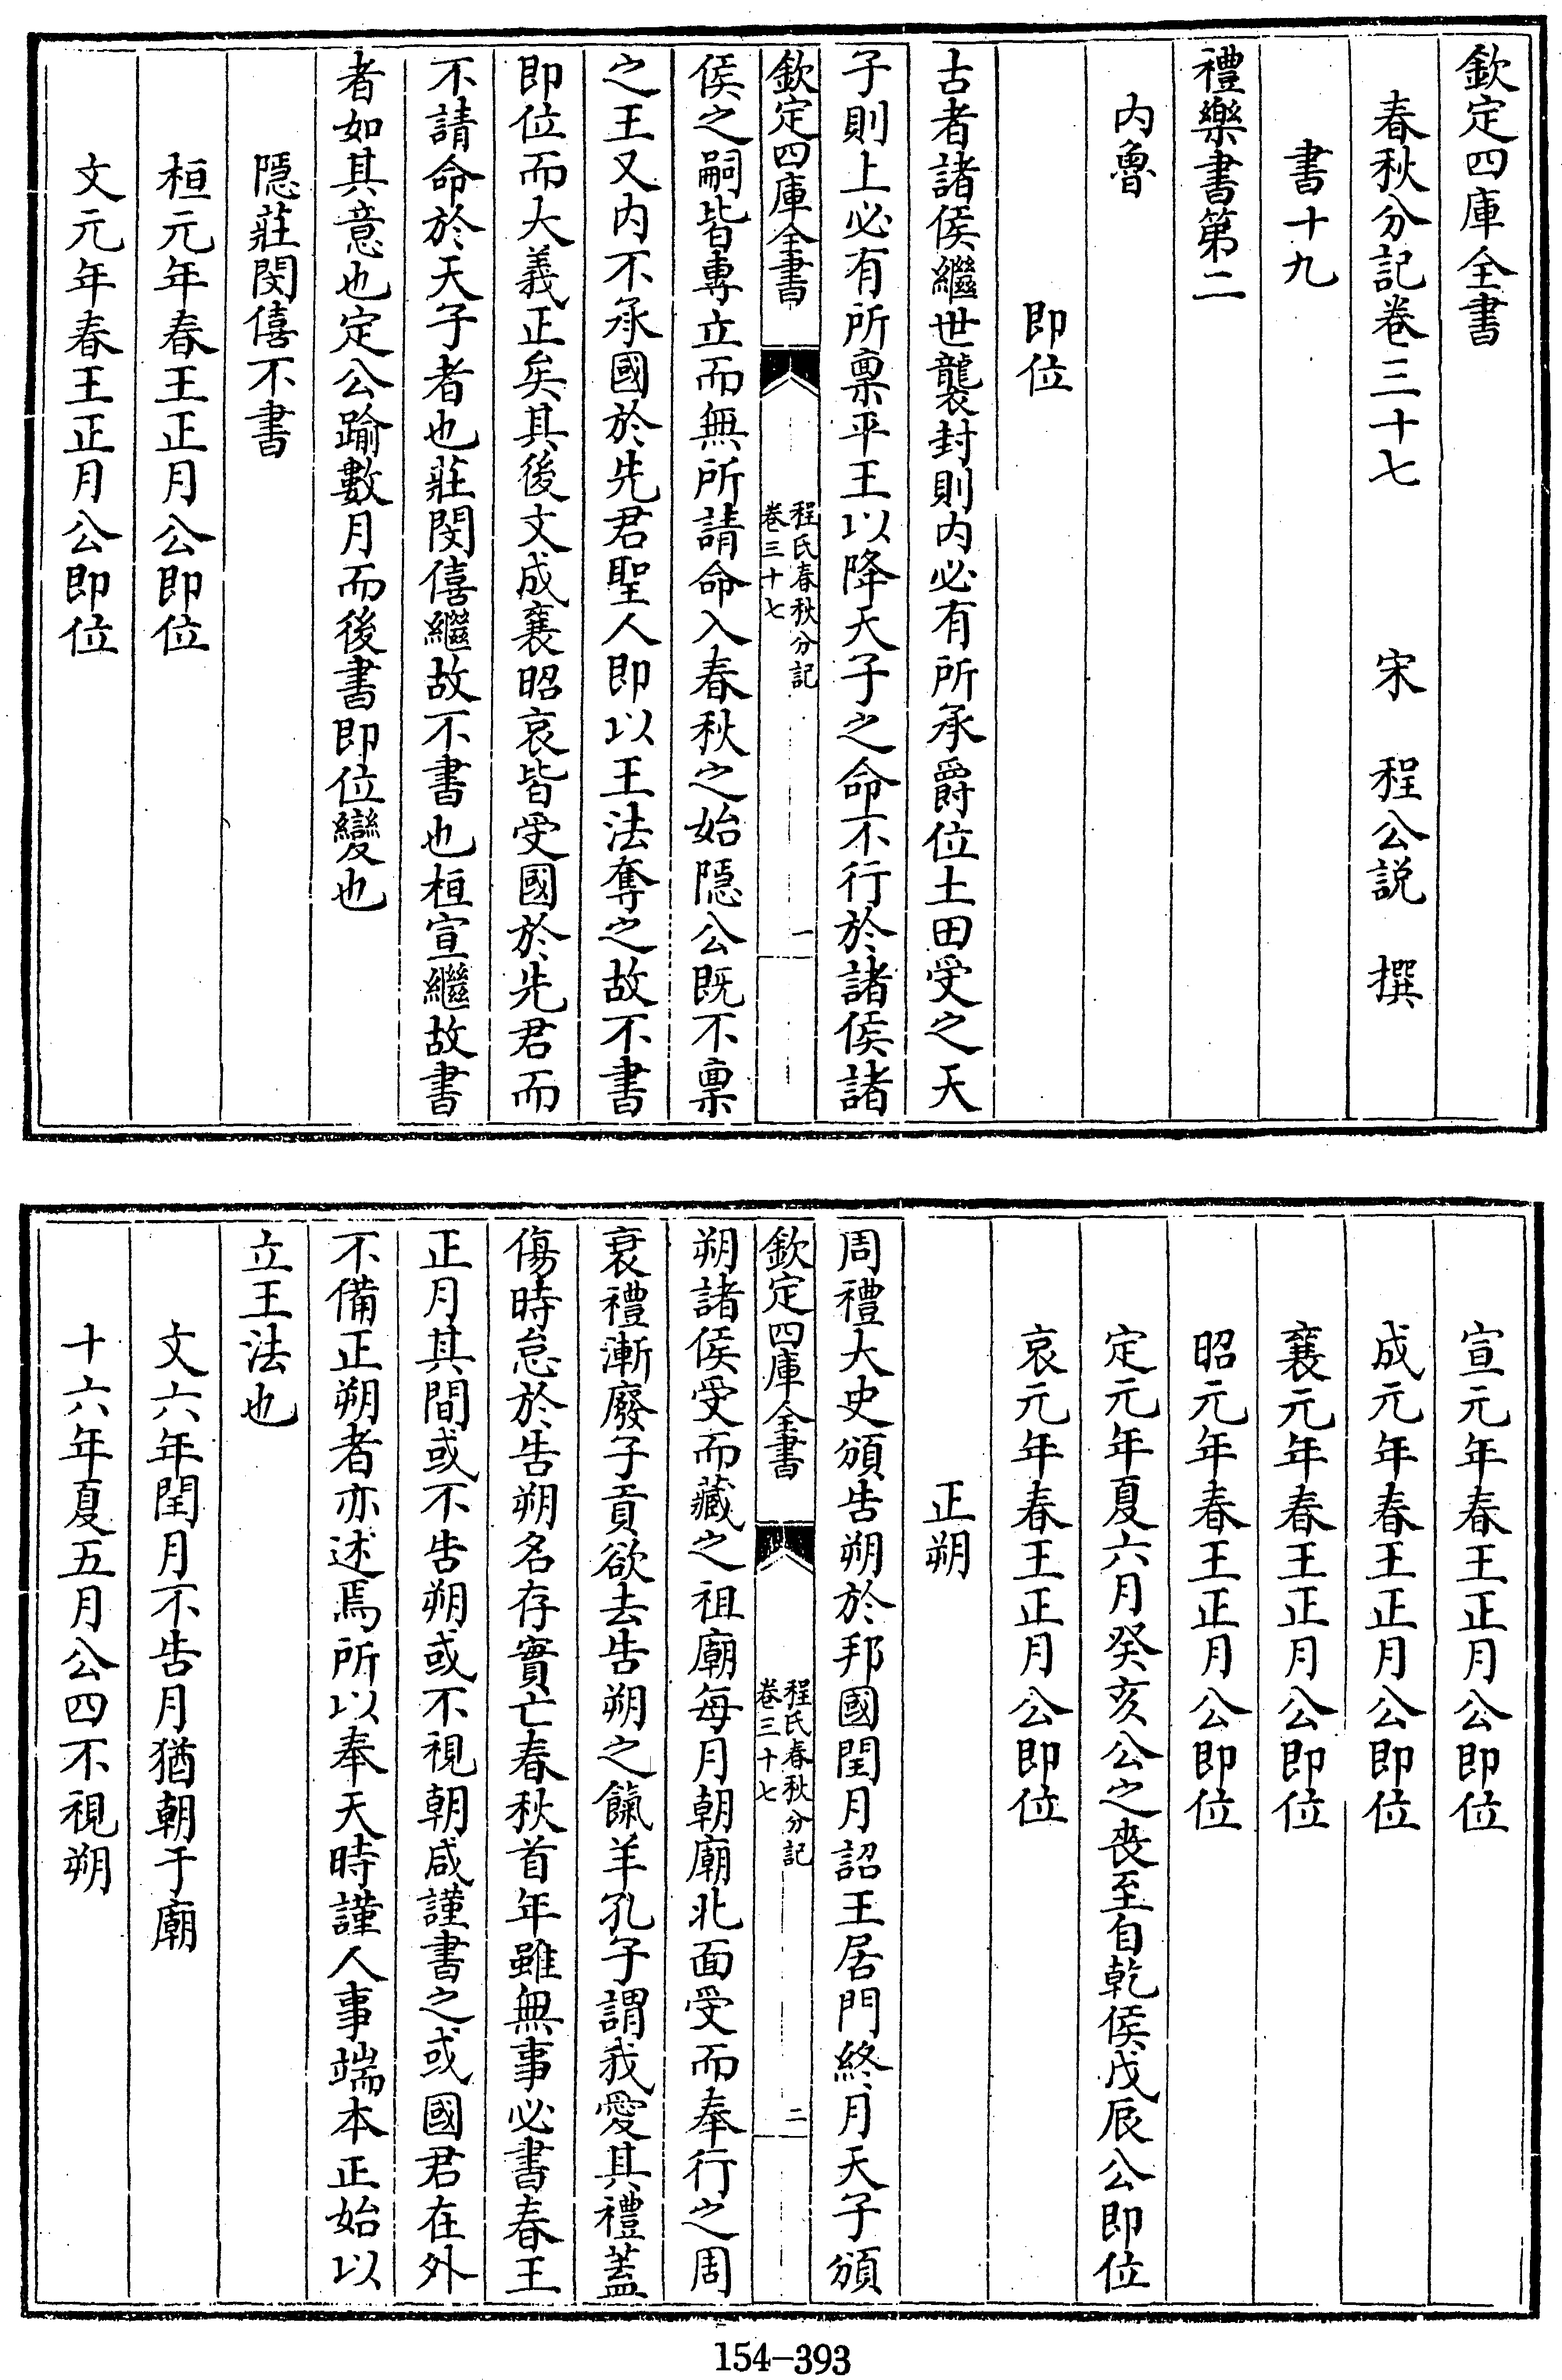 欽定四庫全書
春秋分記卷三十七　宋　程公説　撰
書十九
禮樂書第二
内魯
即位
古者諸侯繼世襲封則内必有所承爵位土田受之天
子則上必有所稟平王以降天子之命不行於諸侯諸
欽定四庫全書
程氏春秋分記
卷三十七
一
侯之嗣皆專立而無所請命入春秋之始隠公既不稟
之王又内不承國於先君聖人即以王法奪之故不書
即位而大義正矣其後文成襄昭哀皆受國於先君而
不請命於天子者也莊閔僖繼故不書也桓宣繼故書
者如其意也定公踰數月而後書即位變也
隠莊閔僖不書
桓元年春王正月公即位
文元年春王正月公即位
宣元年春王正月公即位
成元年春王正月公即位
襄元年春王正月公即位
昭元年春王正月公即位
定元年夏六月癸亥公之喪至自乾侯戊辰公即位
哀元年春王正月公即位
正朔
周禮大史頒告朔於邦國閏月詔王居門終月天子頒
欽定四庫全書
程氏春秋分記
卷三十七
二
朔諸侯受而藏之祖廟每月朝廟北面受而奉行之周
衰禮漸廢子貢欲去告朔之餼羊孔子謂我愛其禮蓋
傷時怠於告朔名存實亡春秋首年雖無事必書春王
正月其間或不告朔或不視朝咸謹書之或國君在外
不備正朔者亦述焉所以奉天時謹人事端本正始以
立王法也
文六年閏月不告月猶朝于廟
十六年夏五月公四不視朔
154-393